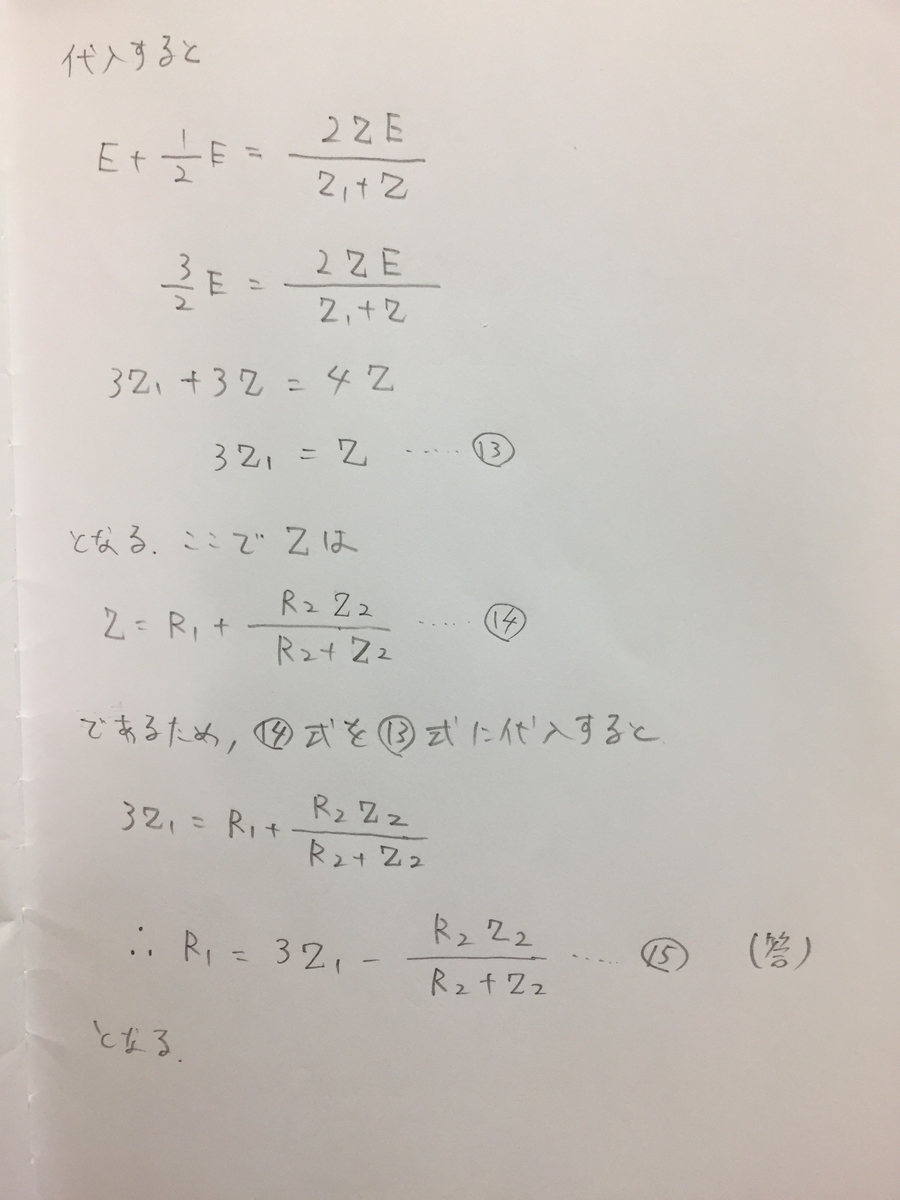 代入すると
E + 1/2 E = 2ZE / (Z₁+Z)
3/2 E = 2ZE / (Z₁+Z)
3Z₁ + 3Z = 4Z
3Z₁ = Z ‥‥‥ ⑬
となる. ここで Zは
Z = R₁ + R₂Z₂ / (R₂+Z₂) ‥‥‥ ⑭
であるため, ⑭式を⑬式に代入すると
3Z₁ = R₁ + R₂Z₂ / (R₂+Z₂)
∴ R₁ = 3Z₁ - R₂Z₂ / (R₂+Z₂) ‥‥‥ ⑮ (答)
となる.